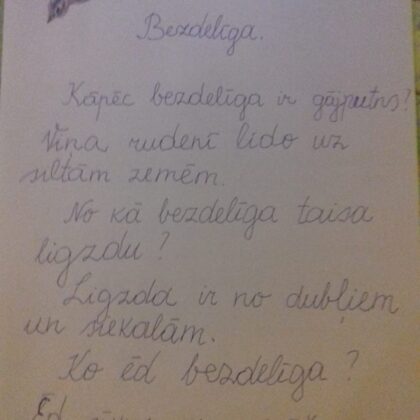 Bezdelīga.
Kāpēc bezdelīga ir gājputns?
Viņa rudenī lido uz
siltām zemēm.
No kā bezdelīga taisa
ligzdu?
Ligzda ir no dubļiem
un siekalām.
Ko ēd bezdelīga?
Ēd